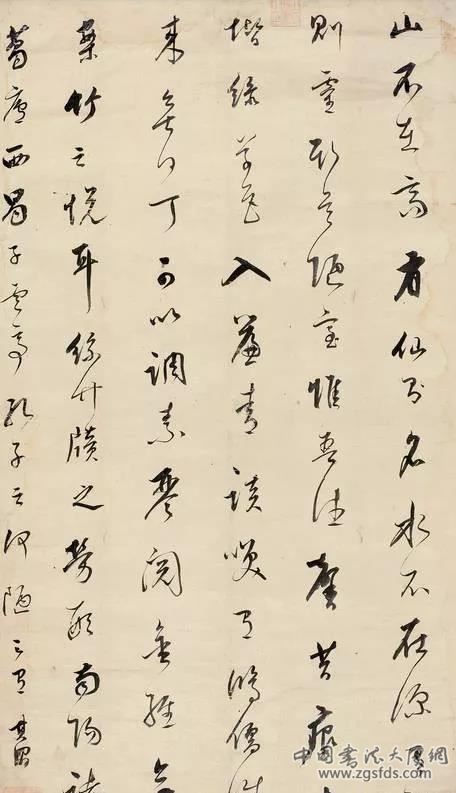 山不在高有仙則名水不在深
則靈斯是陋室惟吾德馨苔痕
堦綠草色入簾青談笑有鴻儒往
來無白丁可以調素琴閱金經無
竹之耳牘之勞形南陽諸
葛廬西蜀子雲亭孔子云何陋之有 其昌
中国書法大师網
www.zgsfds.com